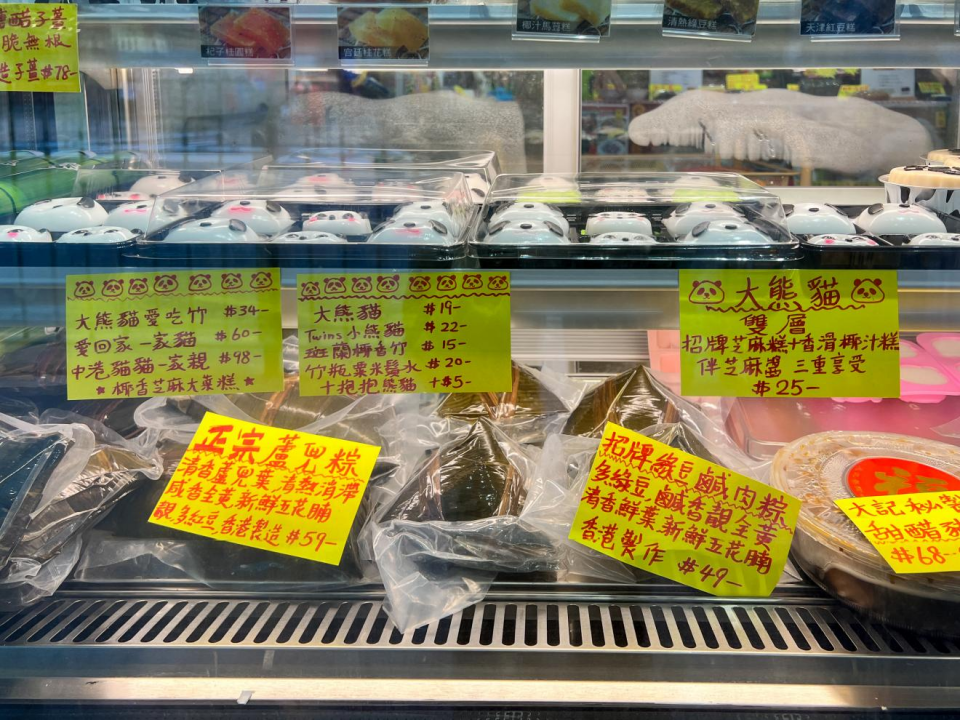 醋子薑
脆無根
子薑#78-
杞子桂圓糕
宮廷桂花糕
椰汁馬荳糕
清熱綠豆糕
天津紅豆糕
大熊貓愛吃竹 $34-
愛回家一家貓 $60-
中港貓貓一家親 $98-
★椰香芝麻大菜糕★
大熊貓 $19-
Twins小熊貓 $22-
班蘭椰香竹 $15-
竹瓶粟米鬚水 $20-
十抱抱熊貓 +$5-
大熊貓
雙層
招牌芝麻糕+香滑椰汁糕
伴芝麻醬 三重享受
$25-
正宗蘆兜粽
清香蘆兜葉 清熱消滯
咸香全黃 新鮮五花腩
靚多紅豆,香港製造 $59-
招牌綠豆鹹肉粽
多綠豆 鹹香靚全黃
清香鮮葉 新鮮五花腩
香港製作 $49-
大記秘製
甜醋豬
$68-